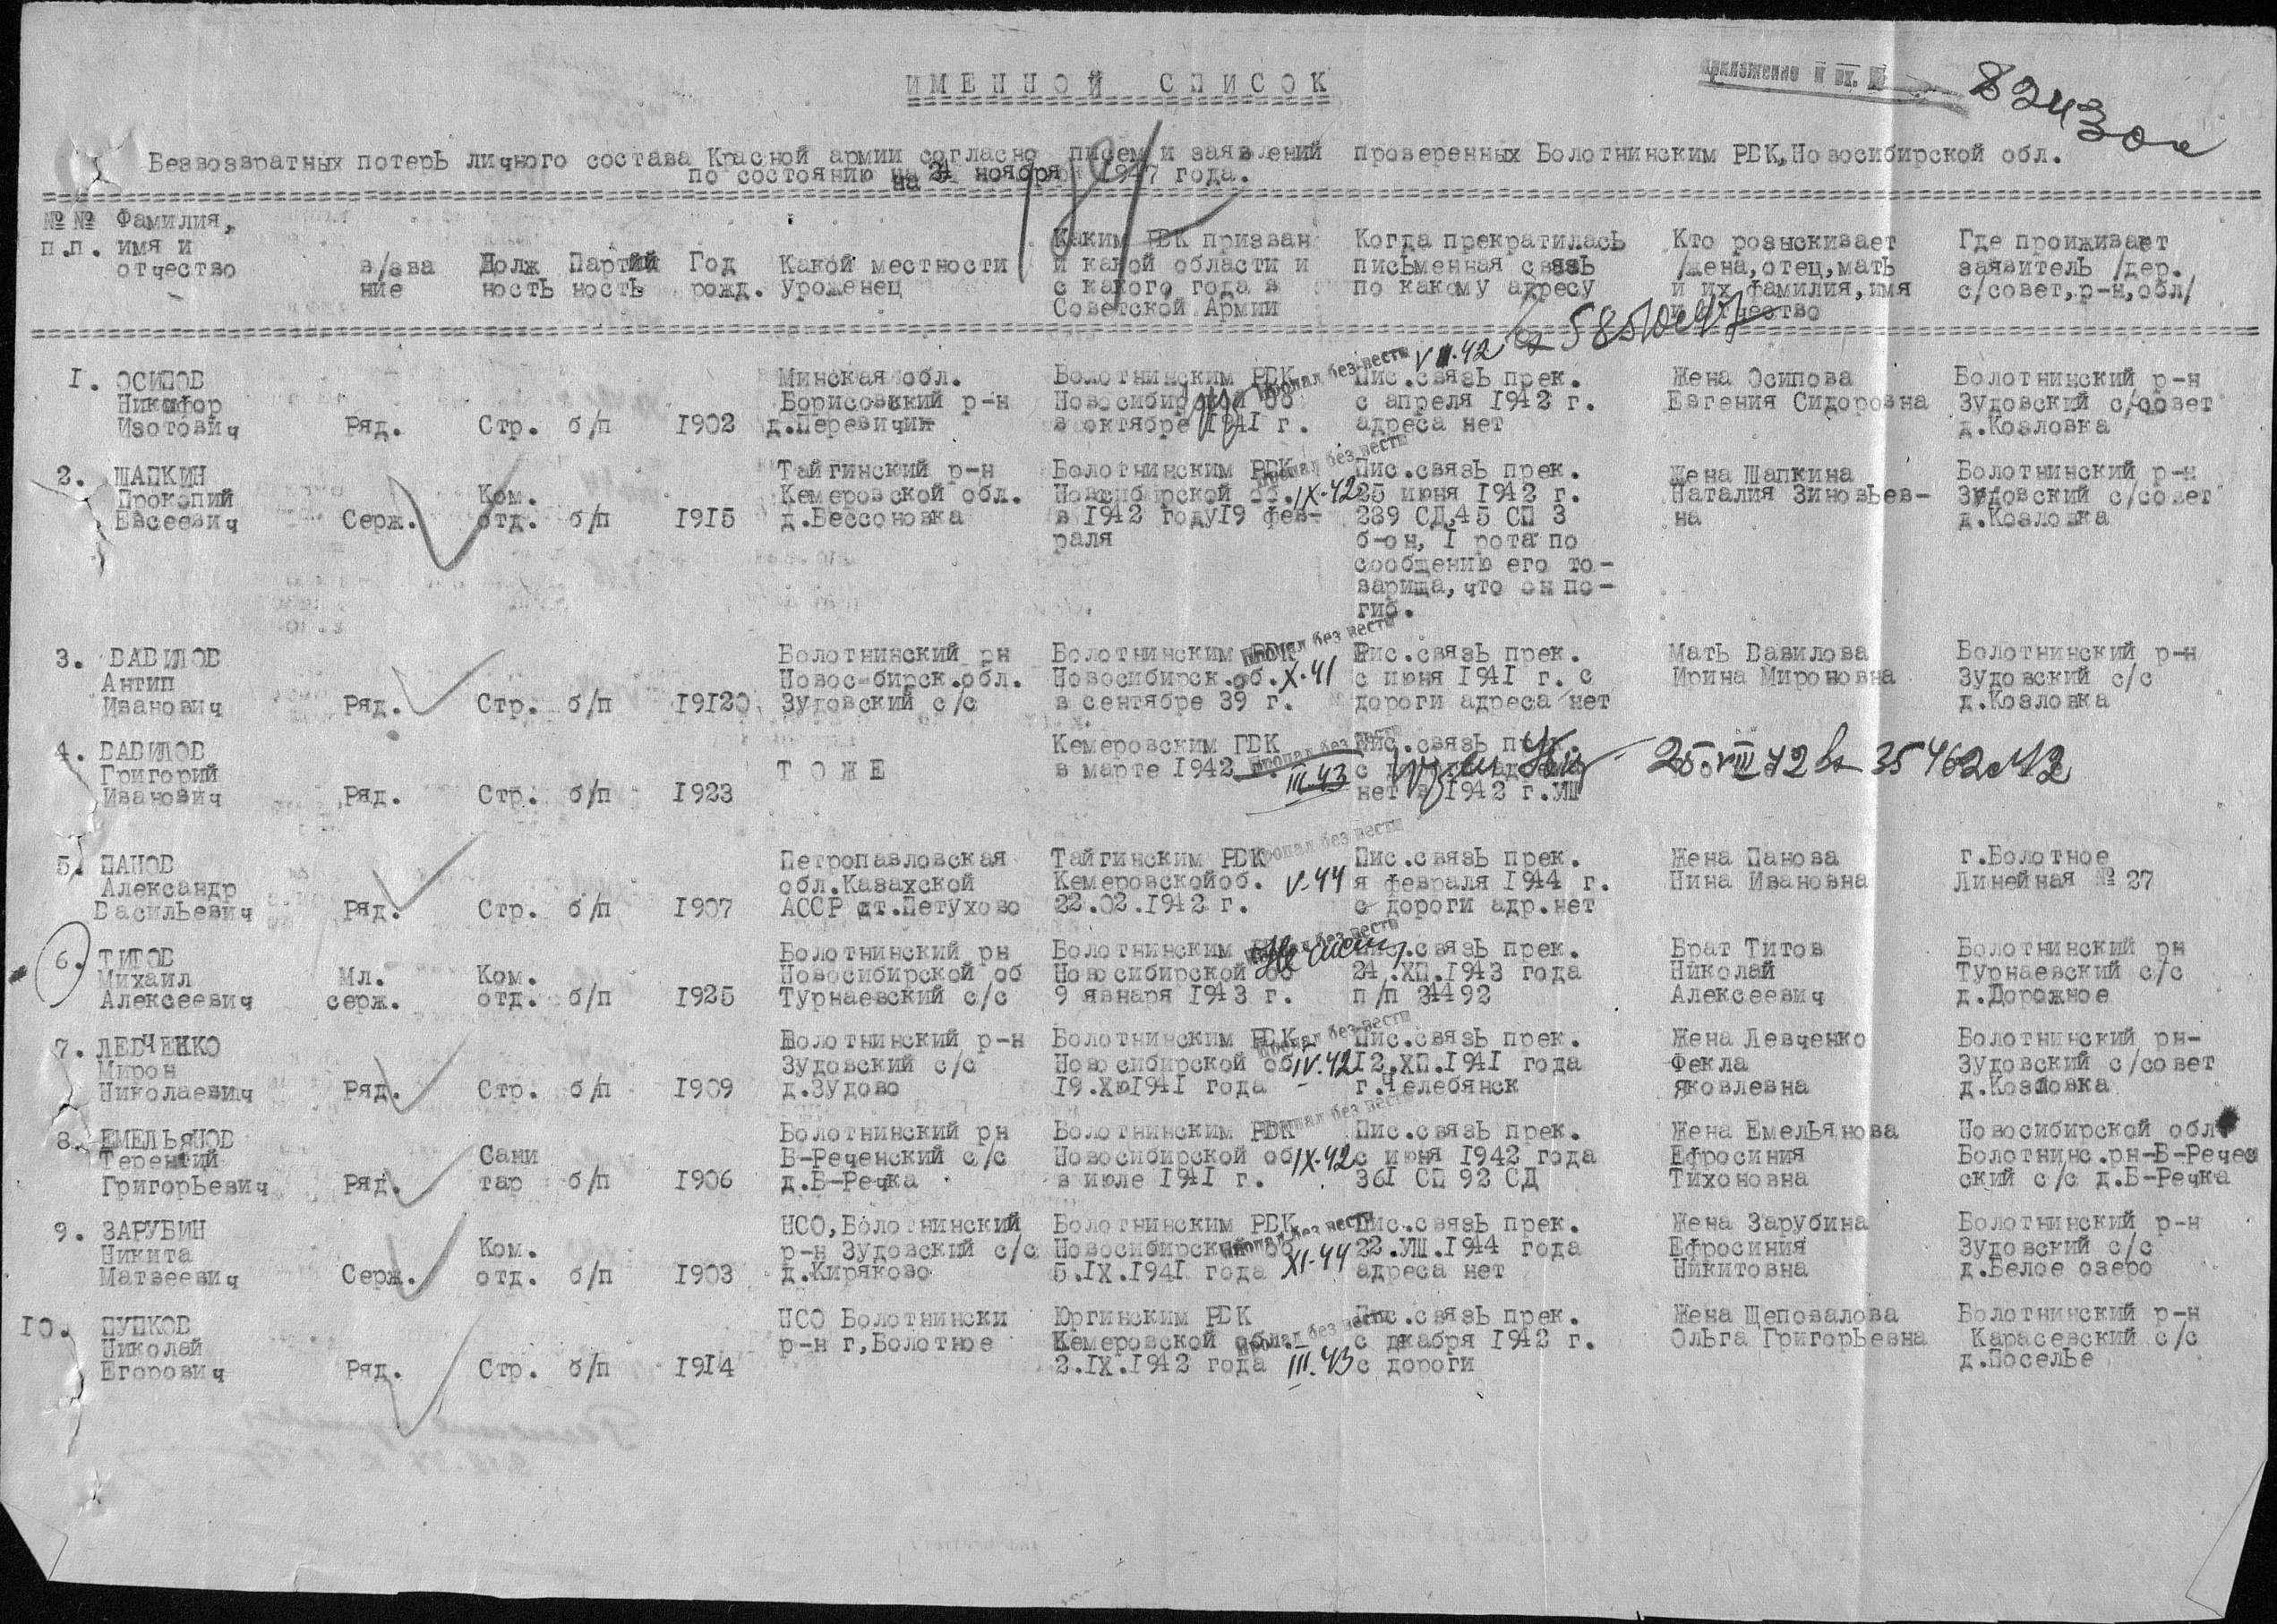 ИМЕННОЙ СПИСОК
приложение к вх. №
8243 ос
Безвозвратных потерь личного состава Красной армии согласно писем и заявлений проверенных Болотнинским РВК,Новосибирской обл.
по состоянию на ноября 1947 года.
№№ Фамилия,
п.п. имя и отчество
в/зва ние
Долж ность
Партий ность
Год рожд.
Какой местности уроженец
Каким РВК призван
и какой области и
с какого года в
Советской Армии
Когда прекратилась
письменная связь
по какому адресу
Кто розыскивает
/жена,отец,мать
и их фамилия,имя
и отчество
Где проиживает
заявитель /дер.
с/совет,р-н,обл/
1. ОСИПОВ Минская обл. Болотнинским РВК Пропал без вести V 42 Пис.связь прек. Жена Осипова Болотнинский р-н
Никифор Борисовский р-н Новосибирской об с апреля 1942 г. Евгения Сидоровна Зудовский с/совет
Изотович Ряд. Стр. б/п 1902 в октябре 1941 г. адреса нет д.Козловка
2. ШАПКИН Тайгинский р-н Болотнинским РВК Пропал без вести Пис.связь прек. Жена Шапкина Болотнинский р-н
Прокопий Ком. Кемеровской обл. Новосибирской об. IX-42 25 июня 1942 г. Наталия Зиновьев- Зудовский с/совет
Евсеевич Серж. отд. б/п 1915 д.Бессоновка в 1942 году19 фев- 239 СД,45 СП 3 на д.Козловка
раля б-он, I рота по
сообщению его то-
варища, что он по-
гиб.
3. ВАВИЛОВ Болотнинский рн Болотнинским РВК Пропал без вести Пис.связь прек. Мать Вавилова Болотнинский р-н
Антип Новос-бирск.обл. Новосибирск.об. X-41 с июня 1941 г. с Ирина Мироновна Зудовский с/с
Иванович Ряд. Стр. б/п 19120 Зудовский с/с в сентябре 39 г. дороги адреса нет д.Козловка
4. ВАВИЛОВ Кемеровским ГВК Пропал без вести Пис.связь
Григорий ТОЖЕ в марте 1942 III.43 25.VIII 72 вх 35462
Иванович Ряд. Стр. б/п 1923 нет в 1942 г.УШ
5. ПАНОВ Петропавловская Тайгинским РВК Пропал без вести Пис.связь прек. Жена Панова г.Болотное
Александр обл.Казахской Кемеровскойоб. V-44 я февраля 1944 г. Нина Ивановна Линейная № 27
Васильевич Ряд. Стр. б/п 1907 АССР ст.Петухово 22.02.1942 г. с дороги адр.нет
6. ТИТОВ Болотнинский рн Болотнинским Пропал без вести Пис.связь прек. Брат Титов Болотнинский рн
Михаил Мл. Ком. Новосибирской об Новосибирской об 24.ХП.1943 года Николай Турнаевский с/с
Алексеевич серж. отд. б/п 1925 Турнаевский с/с 9 января 1943 г. п/п 34492 Алексеевич д.Дорожное
7. ЛЕВЧЕНКО Болотнинский р-н Болотнинским РВК Пропал без вести Пис.связь прек. Жена Левченко Болотнинский рн-
Мирон Зудовский с/с Новосибирской об IV.42 12.ХП.1941 года Фекла Зудовский с/совет
Николаевич Ряд. Стр. б/п 1909 д.Зудово 19.Хю1941 года г.Челебянск Яковлевна д.Козловка
8. ЕМЕЛЬЯНОВ Болотнинский рн Болотнинским РВК Пропал без вести Пис.связь прек. Жена Емельянова Новосибирской обл
Терентий Сани Б-Реченский с/с Новосибирской об IX-42 с июня 1942 года Ефросиния Болотнинс.рн-Б-Речен
Григорьевич Ряд. тар б/п 1906 д.Б-Речка в июле 1941 г. 361 СП 92 СД Тихоновна ский с/с д.Б-Речка
9. ЗАРУБИН НСО,Болотнинский Болотнинским РВК Пропал без вести Пис.связь прек. Жена Зарубина Болотнинский р-н
Никита Ком. р-н Зудовский с/с Новосибирской об XI-44 22.УШ.1944 года Ефросиния Зудовский с/с
Матвеевич Серж. отд. б/п 1903 д.Киряково 5.IX.1941 года адреса нет Никитовна д.Белое озеро
10. ПУПКОВ НСО Болотнински Юргинским РВК Пис.связь прек. Жена Щеповалова Болотнинский р-н
Николай р-н г,Болотное Кемеровской обл. Пропал без вести с декабря 1942 г. Ольга Григорьевна Карасевский с/с
Егорович Ряд. Стр. б/п 1914 2.IX.1942 года III.43 с дороги д.Поселье